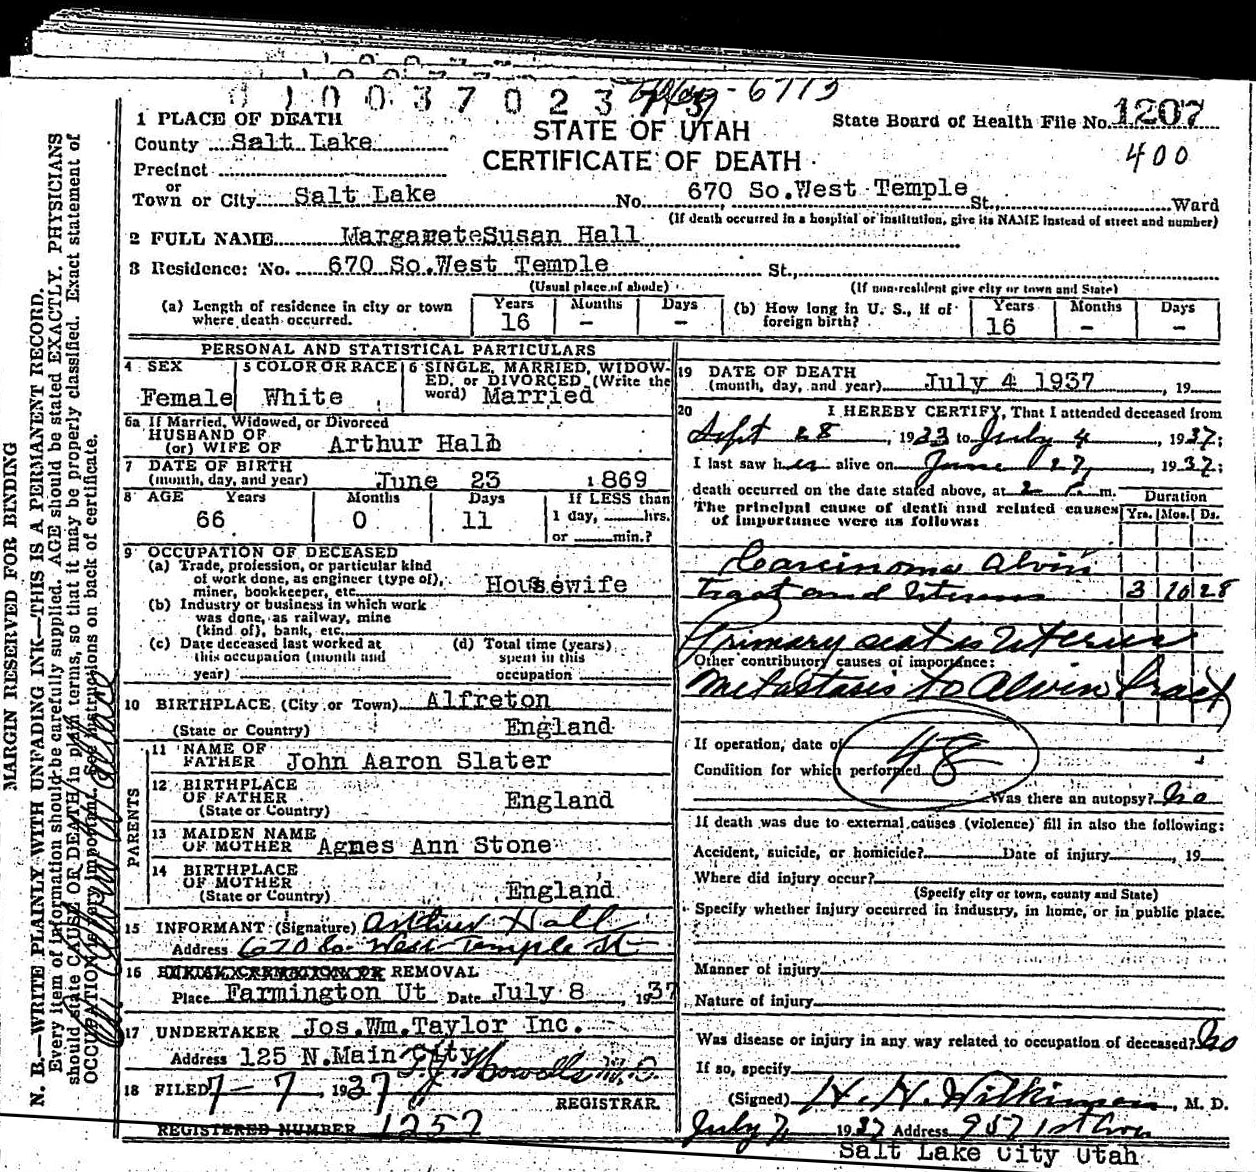 0 1 0 0 3 7 0 2 3 7 1 3
6713
1 PLACE OF DEATH
STATE OF UTAH
CERTIFICATE OF DEATH
State Board of Health File No. 1207
400
County Salt Lake
Precinct
or
Town or City Salt Lake No. 670 So.West Temple St., Ward
(If death occurred in a hospital or institution, give its NAME instead of street and number)
2 FULL NAME MargareteSusan Hall
3 Residence: No. 670 So.West Temple St.,
(Usual place of abode) (If non-resident give city or town and State)
(a) Length of residence in city or town where death occurred. Years 16 Months - Days -
(b) How long in U. S., if of foreign birth? Years 16 Months - Days -
PERSONAL AND STATISTICAL PARTICULARS
4 SEX Female
5 COLOR OR RACE White
6 SINGLE, MARRIED, WIDOWED, or DIVORCED (Write the word) Married
6a If Married, Widowed, or Divorced
HUSBAND OF
(or) WIFE OF Arthur Hall
7 DATE OF BIRTH
(month, day, and year) June 23 1869
8 AGE Years 66 Months 0 Days 11
If LESS than
1 day, hrs.
or min.?
9 OCCUPATION OF DECEASED
(a) Trade, profession, or particular kind
of work done, as engineer (type of),
miner, bookkeeper, etc. Housewife
(b) Industry or business in which work
was done, as railway, mine
(kind of), bank, etc.
(c) Date deceased last worked at
this occupation (month and
year)
(d) Total time (years)
spent in this
occupation
10 BIRTHPLACE (City or Town) Alfreton
(State or Country) England
PARENTS
11 NAME OF
FATHER John Aaron Slater
12 BIRTHPLACE
OF FATHER
(State or Country) England
13 MAIDEN NAME
OF MOTHER Agnes Ann Stone
14 BIRTHPLACE
OF MOTHER
(State or Country) England
15 INFORMANT (Signature) Arthur Hall
Address 670 So. West Temple St
16 REMOVAL
Place Farmington Ut Date July 8 1937
17 UNDERTAKER Jos.Wm.Taylor Inc.
Address 125 N.Main City
18 FILED 7-7 1937 T.J. Howells M.D.
REGISTRAR
REGISTERED NUMBER 1257
19 DATE OF DEATH
(month, day, and year) July 4 1937 , 19
20 I HEREBY CERTIFY, That I attended deceased from
Sept 28, 1933 to July 4, 1937;
I last saw her alive on June 27, 1937;
death occurred on the date stated above, at 2 P. m.
The principal cause of death and related causes
of importance were as follows:
Duration
Yrs. Mos. Ds.
Carcinoma Alvin
Tract and Uterus 3 10 28
Primary seat is Uterus
Other contributory causes of importance:
Metastasis to Alvin tract
If operation, date of
48
Condition for which performed
Was there an autopsy? No
If death was due to external causes (violence) fill in also the following:
Accident, suicide, or homicide? Date of injury , 19
Where did injury occur?
(Specify city or town, county and State)
Specify whether injury occurred in industry, in home, or in public place.
Manner of injury
Nature of injury
Was disease or injury in any way related to occupation of deceased? No
If so, specify
(Signed) H. H. Wilkinson, M. D.
July 7, 1937 Address 957 1st Ave
Salt Lake City Utah
MARGIN RESERVED FOR BINDING
N. B.—WRITE PLAINLY WITH UNFADING INK—THIS IS A PERMANENT RECORD.
Every item of information should be carefully supplied. AGE should be stated EXACTLY. PHYSICIANS
should state CAUSE OR DEATH in plain terms, so that it may be properly classified. Exact statement of
OCCUPATION is very important. See instructions on back of certificate.